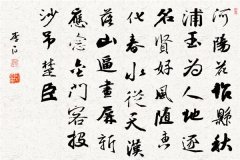 河陽花作縣秋
浦玉為人地逐
名賢好風隨惠
化春水從天漢
落山逼畫屏新
應念金門客投
沙吊楚臣